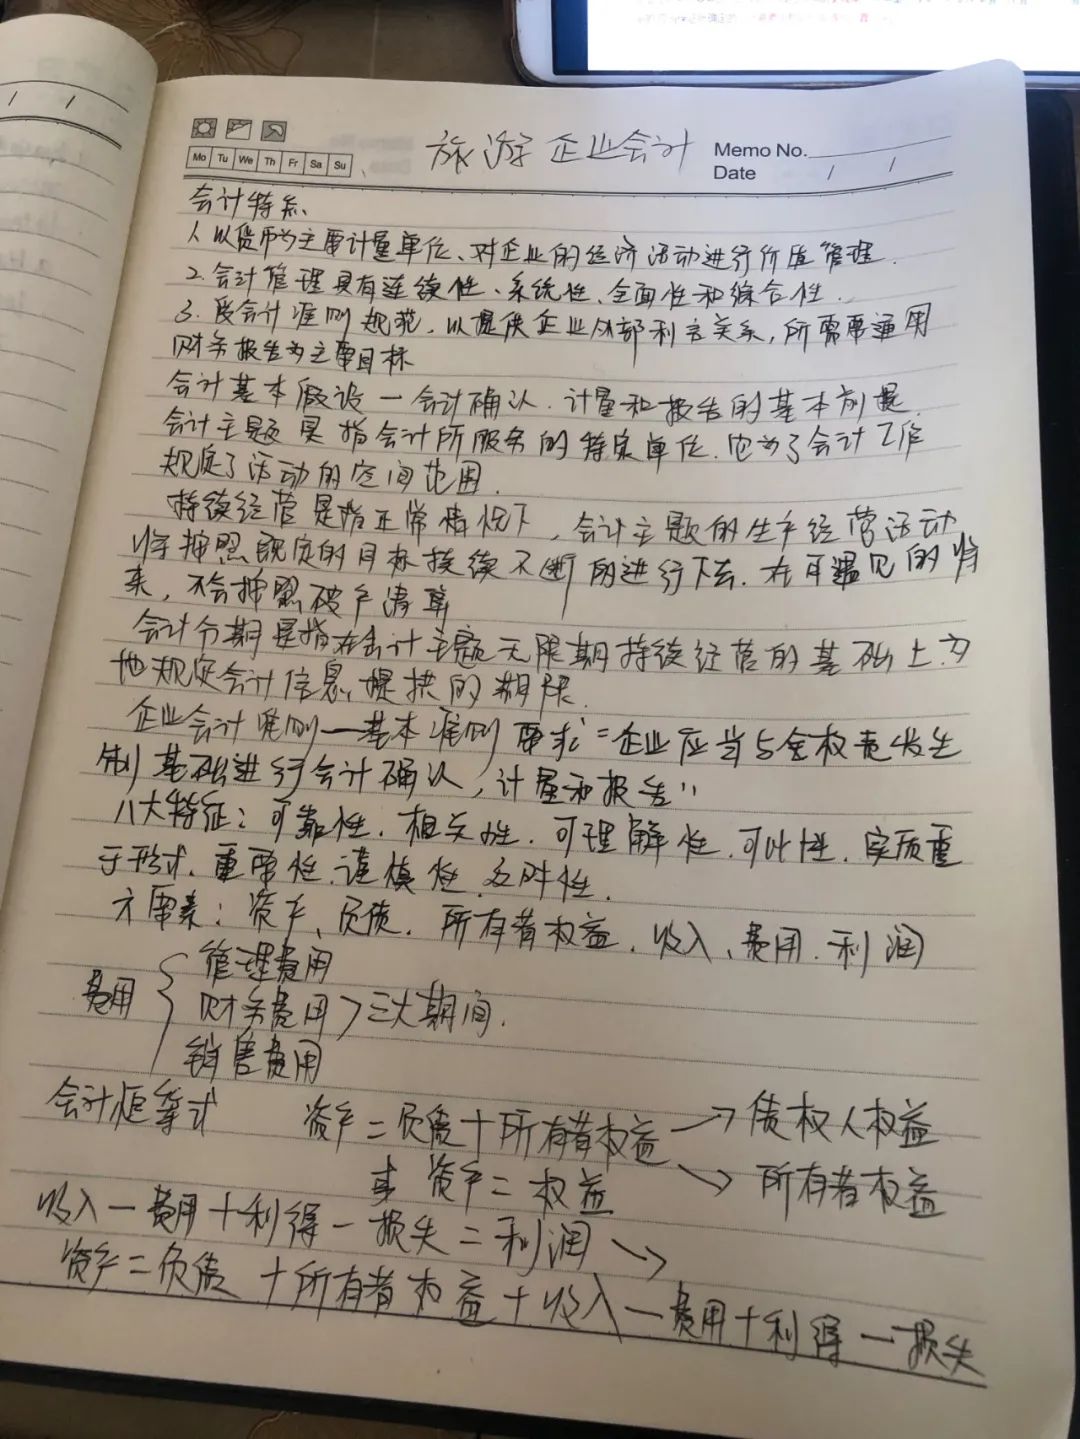 旅游企业会计
Memo No.
Mo Tu We Th Fr Sa Su
Date / /
会计特点、
1. 以货币为主要计量单位、对企业的经济活动进行价值管理.
2. 会计管理具有连续性、系统性、全面性和综合性.
3. 受会计准则规范, 以提供企业外部利害关系, 所需要通用
财务报告为主要目标
会计基本假设一会计确认. 计量和报告的基本前提.
会计主题是指会计所服务的特定单位. 它为了会计工作
规定了活动的空间范围.
持续经营是指正常情况下, 会计主题的生产经营活动
将按照既定的目标持续不断的进行下去. 在可遇见的将
来, 不会按照破产清算
会计分期是指在会计主题无限期持续经营的基础上. 为
地规定会计信息提拱的期限.
企业会计准则一基本准则要求"企业应当与全权责发生
制基础进行会计确认, 计量和报告"
八大特征: 可靠性. 相关性. 可理解性. 可比性. 实质重
于形式. 重要性. 谨慎性. 及时性.
六要素: 资产、负债. 所有者权益. 收入、费用. 利润
管理费用
费用 财务费用 >三大期间.
销售费用
会计恒等式 资产=负债+所有者权益 → 债权人权益
或 资产=权益 → 所有者权益
收入-费用+利得-损失=利润 →
资产=负债+所有者权益+收入-费用+利得-损失